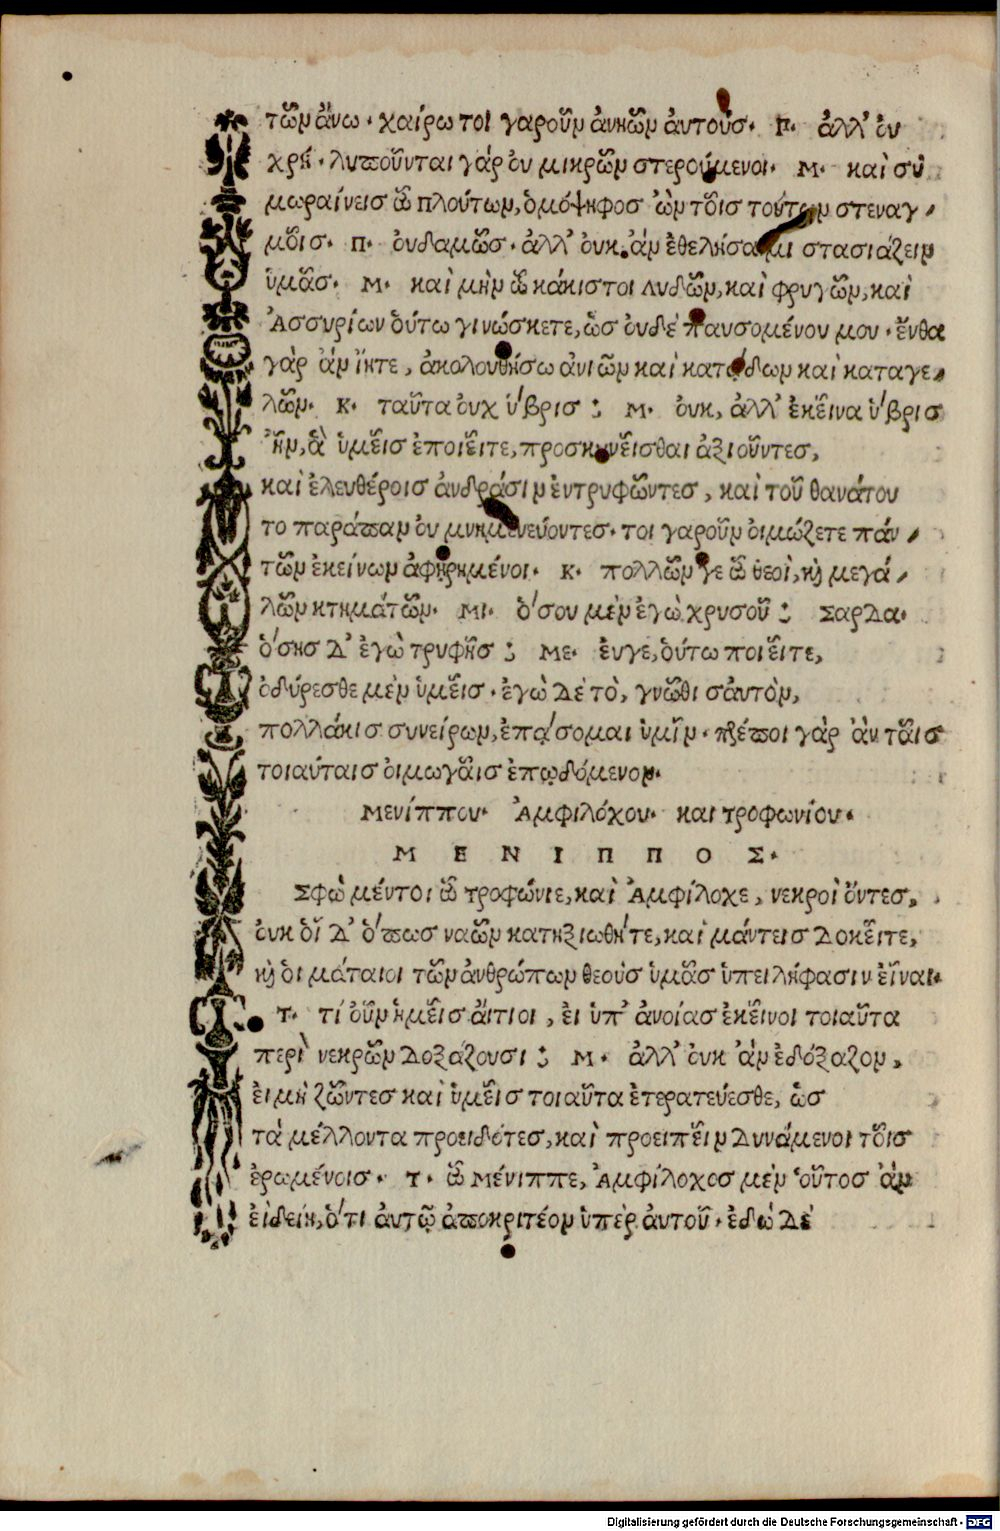 τῶν ἄνω· χαίρω τοι γαροῦν ἀνιῶν ἀυτούς· Π· ἀλλ' ὀυ
χρή· λυποῦνται γάρ ὀυ μικρῶν στερούμενοι· Μ· καὶ σὺ
μωραίνεις ὦ πλούτων, ὁμόψηφος ὢν τοῖς τούτων στεναγ,
μοῖς· Π· ὀυδαμῶς· ἀλλ' ὀυκ ἀν ἐθελήσαιμι στασιάζειν
ὑμᾶς· Μ· καὶ μὴν ὦ κάκιστοι Λυδῶν, καὶ φρυγῶν, καὶ
Ἀσσυρίων ὁύτω γινώσκετε, ὡς ὀυδὲ παυσομένου μου· ἔνθα
γὰρ ἀν ἴητε, ἀκολουθήσω ἀνιῶν καὶ κατᾴδων καὶ καταγε,
λῶν· Κ· ταῦτα ὀυχ ὑβρις ; Μ· ὀυκ, ἀλλ' ἐκεῖνα ὑβρις
ἦν, ἃ ὑμεῖς ἐποιεῖτε, προσκυνεῖσθαι ἀξιοῦντες,
καὶ ἐλευθέροις ἀνδράσιν ἐντρυφῶντες, καὶ τοῦ θανάτου
το παράπαν ὀυ μνημονεύοντες· τοι γαροῦν ὀιμώζετε πάν,
τῶν ἐκείνων ἀφῃρημένοι· Κ· πολλῶν γε ὦ θεοὶ, κὶ μεγά,
λῶν κτημάτῶν· ΜΙ· ὅσου μὲν ἐγὼ χρυσοῦ ; Σαρδα·
ὅσης δ' ἐγὼ τρυφῆς ; Με· ἐυγε, ὁύτω ποιεῖτε,
ὀδύρεσθε μὲν ὑμεῖς· ἐγὼ δὲ τὸ, γνῶθι σἀυτὸν,
πολλάκις συνείρων, ἐπᾴσομαι ὑμῖν· πρέποι γὰρ ἂν ταῖς
τοιαύταις ὀιμωγαῖς ἐπᾳδόμενον·
Μενίππου· Ἀμφιλόχου· και τροφωνίου·
Μ Ε Ν Ι Π Π Ο Σ·
Σφὼ μέντοι ὦ τροφώνιε, καὶ Ἀμφίλοχε, νεκροὶ ὄντες,
ὀυκ ὁῖ δ' ὅπως ναῶν κατηξιωθήτε, καὶ μάντεις δοκεῖτε,
κὶ ὁι μάταιοι τῶν ἀνθρώπων θεοὺς ὑμᾶς ὑπειλήφασιν εἶναι·
Τ· τί ὀῦν ἡμεῖς ἄιτιοι, ἐι ὑπ' ἀνοίας ἐκεῖνοι τοιαῦτα
περὶ νεκρῶν δοξάζουσι ; Μ· ἀλλ' ὀυκ ἀν ἐδόξαζον,
ἐι μὴ ζῶντες καὶ ὑμεῖς τοιαῦτα ἐτερατεύεσθε, ὡς
τὰ μέλλοντα προειδότες, καὶ προειπεῖν δυνάμενοι τοῖς
ἐρωμένοις· Τ· ὦ Μένιππε, Ἀμφίλοχος μὲν οὗτος ἀν
ἐιδείη, ὅτι ἀυτῷ ἀποκριτέον ὑπὲρ ἀυτοῦ· ἐδὼ δὲ
Digitalisierung gefördert durch die Deutsche Forschungsgemeinschaft - DFG